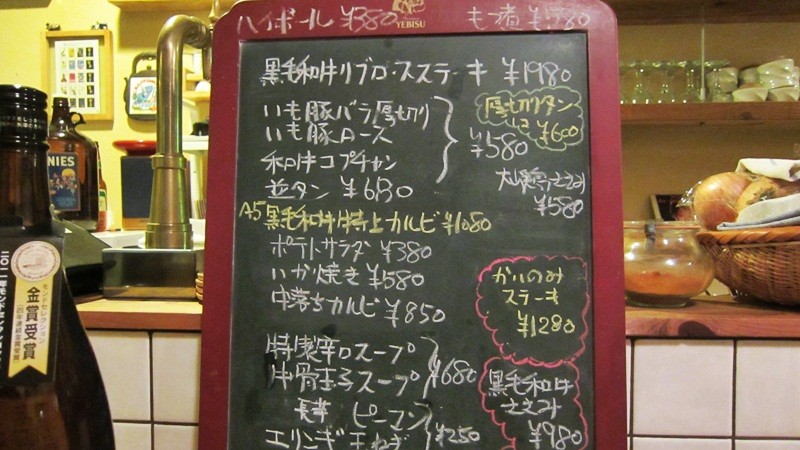 ハイボール ¥380
YEBISU
黒毛和牛リブロースステーキ ¥1980
いも豚バラ厚切り
いも豚ロース
和牛コプチャン
¥580
並タン ¥680
A5黒毛和牛特上カルビ ¥1080
ポテトサラダ ¥380
いか焼き ¥580
中落ちカルビ ¥850
特製辛口スープ
牛骨玉子スープ
¥680
ピーマン
エリンギ 玉ねぎ
¥250
厚切りタン
¥600
ささみ
¥580
かいのみ
ステーキ
¥1280
黒毛和牛
ささみ
¥980
NIES
モンドセレクション
金賞受賞